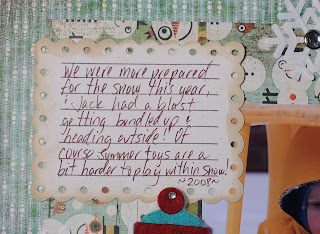 We were more prepared
for the snow this year,
& Jack had a blast
getting bundled up &
heading outside!! Of
course summer toys are a
bit harder to play with in snow!
~2008~